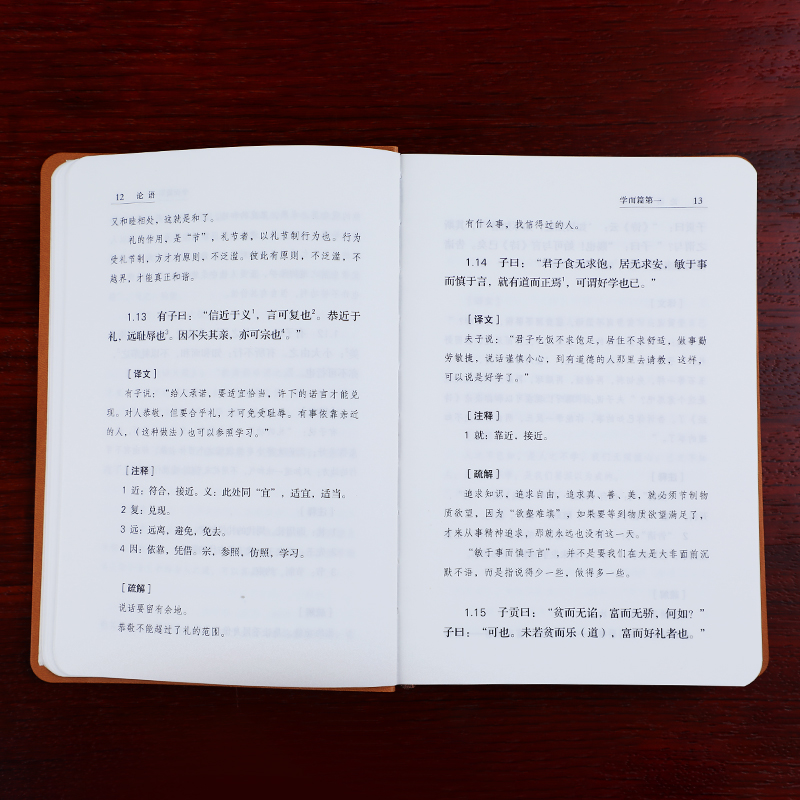 12 论语
又和睦相处，这就是和了。
礼的作用，是“节”，礼节者，以礼节制行为也。行为
受礼节制，方才有原则，不泛滥。彼此有原则，不泛滥，不
越界，才能真正和谐。
1.13 有子曰：“信近于义1，言可复也2。恭近于
礼，远耻辱也3。因不失其亲，亦可宗也4。”
［译文］
有子说：“给人承诺，要适宜恰当，许下的诺言才能兑
现。对人恭敬，但要合乎礼，才可免受耻辱。有事依靠亲近
的人，（这种做法）也可以参照学习。”
［注释］
1 近：符合，接近。义：此处同“宜”，适宜，适当。
2 复：兑现。
3 远：远离，避免，免去。
4 因：依靠，凭借。宗，参照，仿照，学习。
［疏解］
说话要留有余地。
恭敬不能超过了礼的范围。
学而篇第一 13
有什么事，找信得过的人。
1.14 子曰：“君子食无求饱，居无求安，敏于事
而慎于言，就有道而正焉1，可谓好学也已。”
［译文］
夫子说：“君子吃饭不求饱足，居住不求舒适，做事勤
劳敏捷，说话谨慎小心，到有道德的人那里去请教，这样，
可以说是好学了。”
［注释］
1 就：靠近，接近。
［疏解］
追求知识，追求自由，追求真、善、美，就必须节制物
质欲望，因为“欲壑难填”，如果要等到物质欲望满足了，
才来从事精神追求，那就永远也没有这一天。
“敏于事而慎于言”，并不是要我们在大是大非面前沉
默不语，而是指说得少一些，做得多一些。
1.15 子贡曰：“贫而无谄，富而无骄，何如？”
子曰：“可也。未若贫而乐（道），富而好礼者也。”